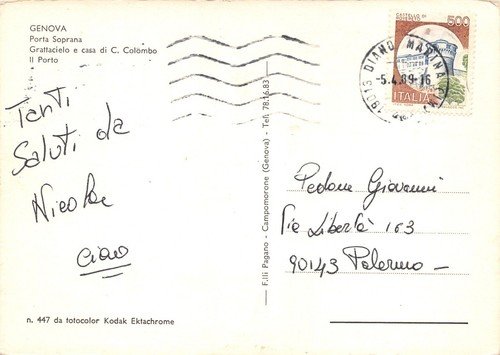 GENOVA
Porta Soprana
Grattacielo e casa di C. Colombo
Il Porto
500
ITALIA
18013 DIANO MARINA
-5.4.89-16
Tanti
Saluti da
Nicola
ciao
F.lli Pagano - Campomorone (Genova) - Tel. 78.16.83
Pedone Giovanni
Via Libertà 163
90143 Palermo -
n. 447 da fotocolor Kodak Ektachrome